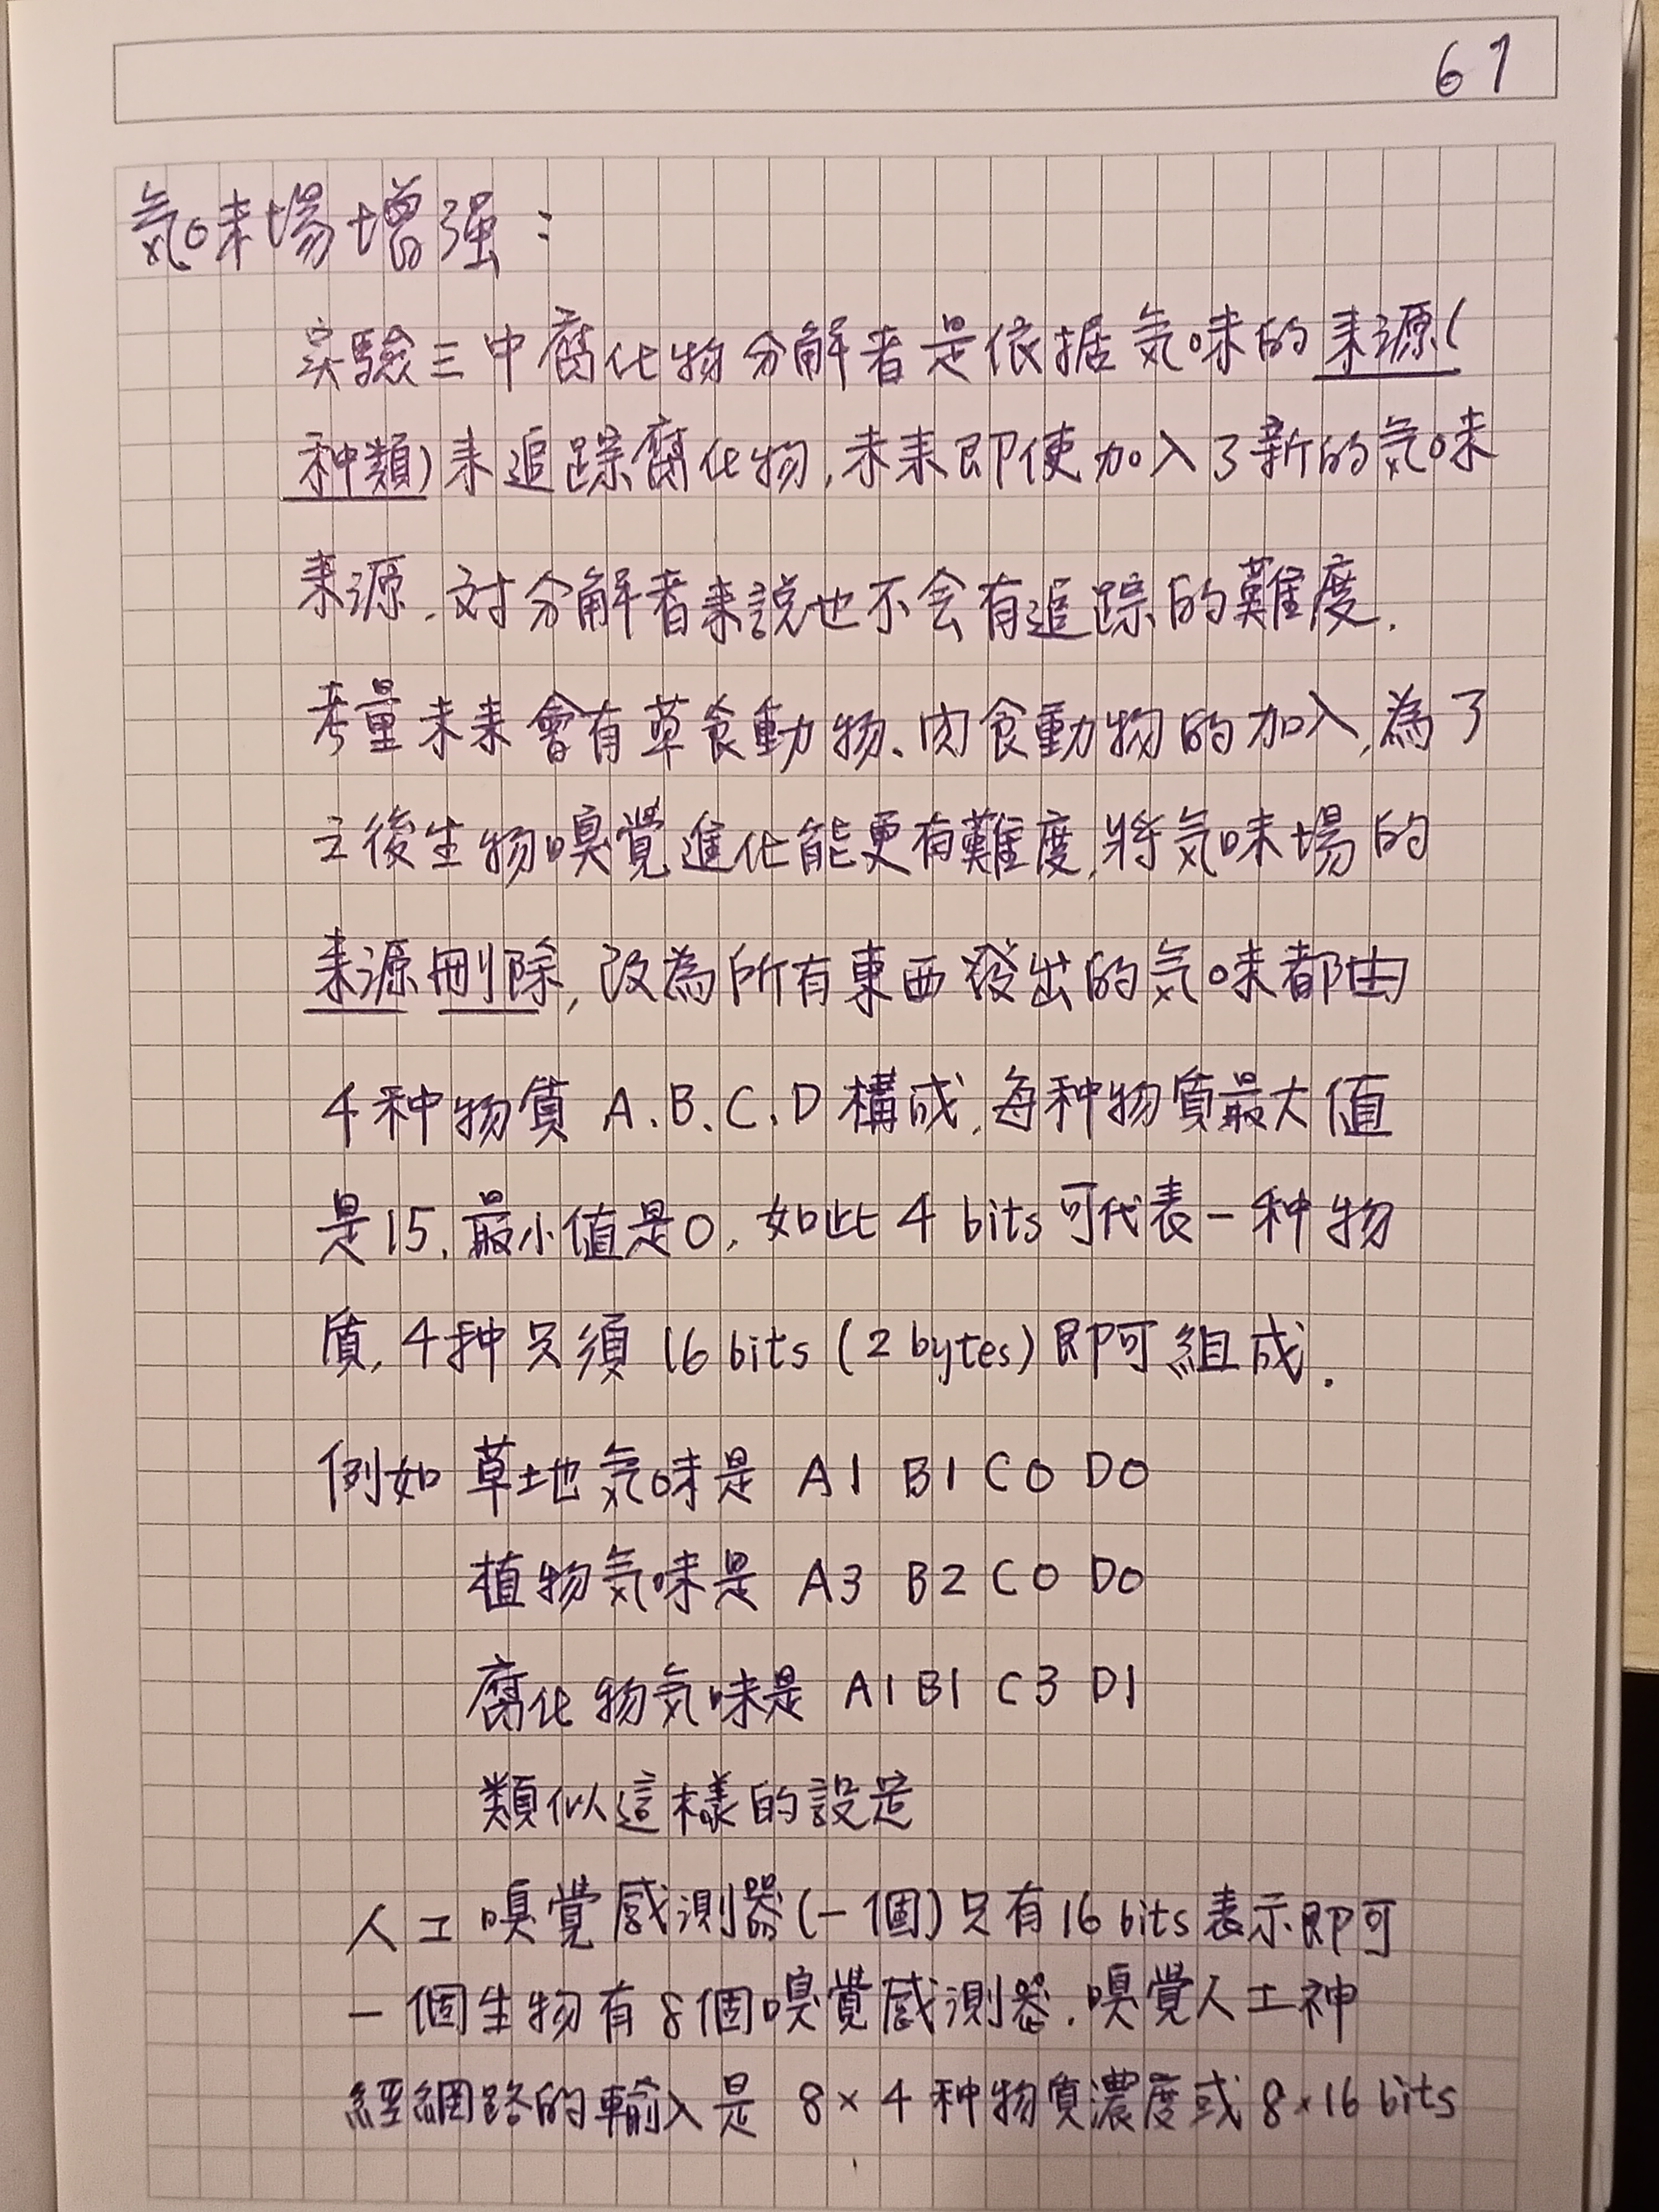 67
気味場增强:
实驗三中腐化物分解者是依据気味的来源(
种類)来追踪腐化物,未来即使加入了新的気味
来源,对分解者来説也不会有追踪的難度.
考量未来會有草食動物、肉食動物的加入,為了
之後生物嗅覺進化能更有難度,將気味場的
来源刪除,改為所有東西發出的気味都由
4种物質 A、B、C、D構成,每种物質最大值
是15,最小值是0,如此4 bits可代表一种物
質,4种只須 16 bits (2 bytes)即可組成.
例如 草地気味是 A1 B1 C0 D0
植物気味是 A3 B2 C0 D0
腐化物気味是 A1 B1 C3 D1
類似這樣的設定
人工嗅覺感測器(一個)只有16 bits表示即可
一個生物有8個嗅覺感測器.嗅覺人工神
經網路的輸入是 8×4种物質濃度或 8×16 bits